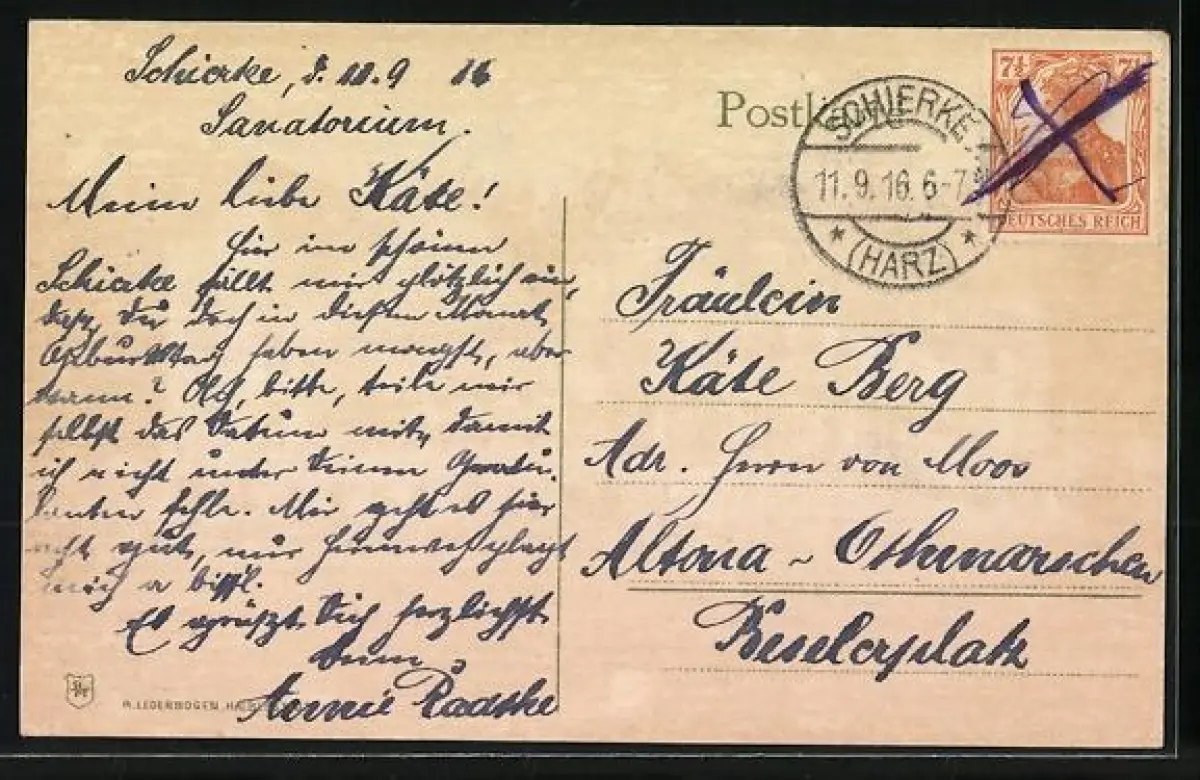 Schierke, d. 10.9 16
Sanatorium.
Mein liebe Käte!
Hier im schönen
Schierke fällt mir plötzlich ein,
daß Du doch in diesem Monat
Geburtstag haben magst, aber
wann? Ach, bitte, teile mir
selbst das Datum mit, damit
ich nicht unter Deinen Gratu-
lanten fehle. Mir geht es hier
recht gut, nur Heimweh plagt
mich a bissl.
Es grüßt Dich herzlichst
Deine
Annie Radtke
A. LEDERBOGEN, HALBERSTADT
Postkarte
SCHIERKE
11.9.16. 6-7
(HARZ)
7½ 7½
DEUTSCHES REICH
Fräulein
Käte Berg
Adr. Herrn von Moos
Altona - Othmarschen
Beselerplatz